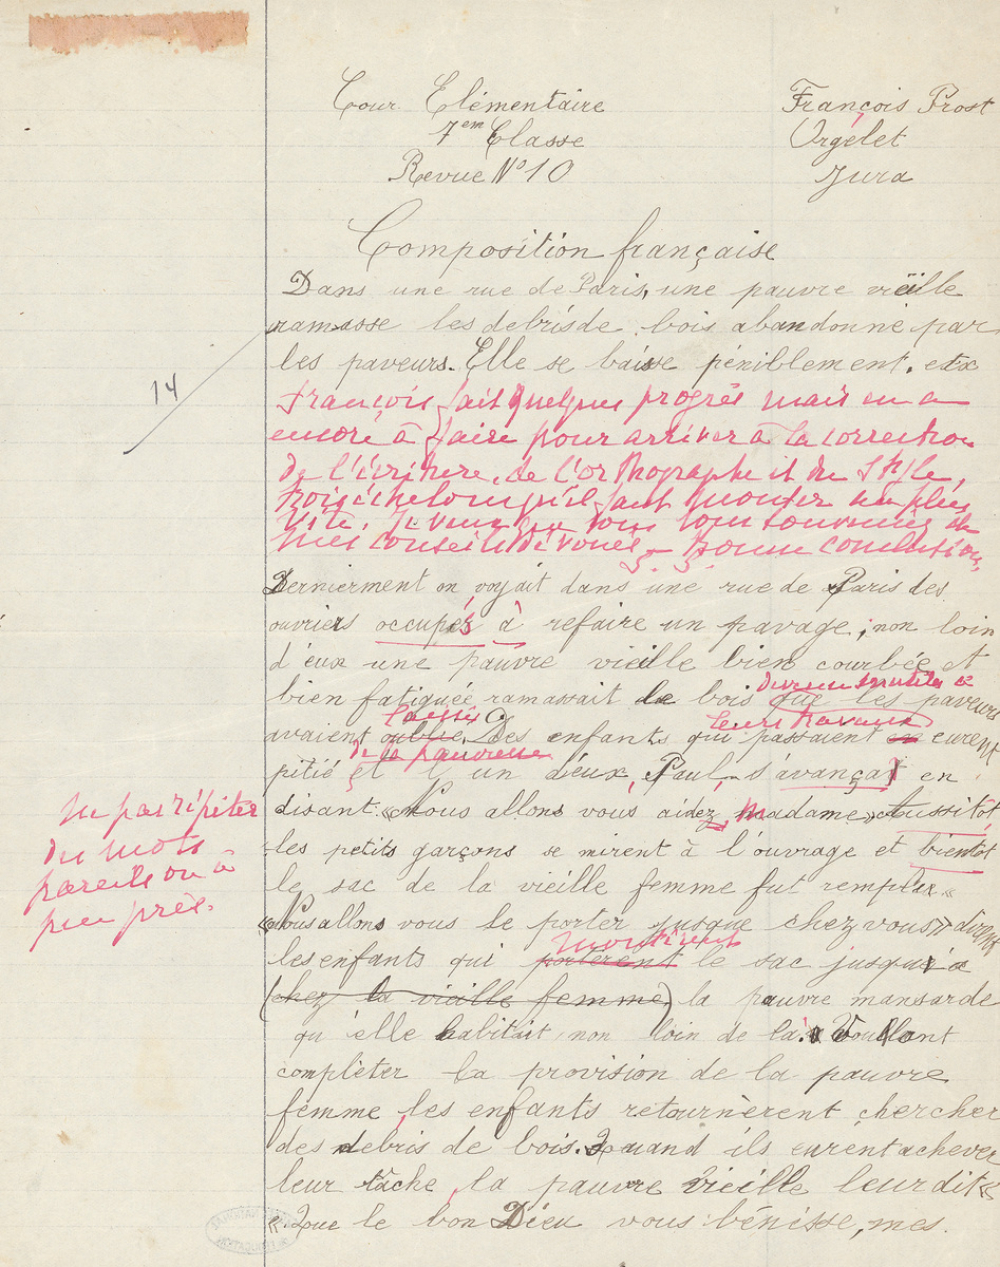 Cour Elémentaire
7em Classe
Revue N°10
François Prost
Orgelet
Jura
Composition française
Dans une rue de Paris, une pauvre vieille
ramasse les debris de bois abandonné par
les paveurs. Elle se baisse péniblement, etc
14
François fait quelques progrès mais en a
encore à faire pour arriver à la correction
de l'écriture, de l'orthographe et du style,
trois échelons qu'il faut monter au plus
vite. Je veux que vous vous souveniez de
mes conseils dévoués. Bonne conclusion.
Dernierment on voyait dans une rue de Paris des
ouvriers occupés à refaire un pavage; non loin
d'eux une pauvre vieille bien courbée et
bien fatiguée ramassait le bois que les paveurs
devenu inutile
avaient oublié. Des enfants qui passaient en eurent
laissé
leurs travaux
pitié et l'un d'eux, Paul, s'avança en
de la pauvresse
disant «Nous allons vous aidez, madame» Aussitôt
les petits garçons se mirent à l'ouvrage et bientôt
le sac de la vieille femme fut remplie «
«Nous allons vous le porter jusque chez vous» dirent
les enfants qui portèrent le sac jusqu'à
montèrent
(chez la vieille femme) la pauvre mansarde
qu'elle habitait non loin de là. Voulant
complèter la provision de la pauvre
femme, les enfants retournèrent chercher
des debris de bois. Quand ils eurent achever
leur tâche, la pauvre vieille leur dit «
« Que le bon Dieu vous bénisse, mes
Ne pas répéter
des mots
pareils ou à
peu près.